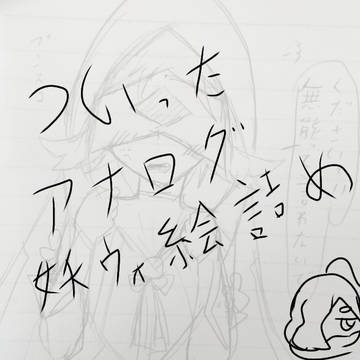 ついった
アナログ
妖ウォ絵詰め
ください
無能